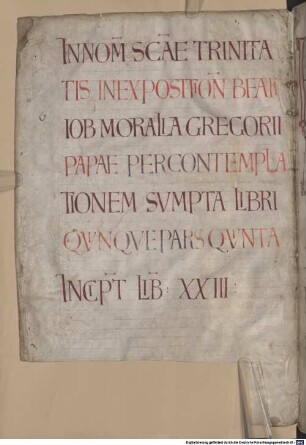 INNOM̄ SCĀE TRINITA
TIS INEXPOSITIOÑ BEATI
IOB MORALIA GREGORII
PAPAE PERCONTEMPLA
TIONEM SVMPTA LIBRI
QVINQVE PARS QVINTA
INCIP̄T LIB̄ : XXIII :